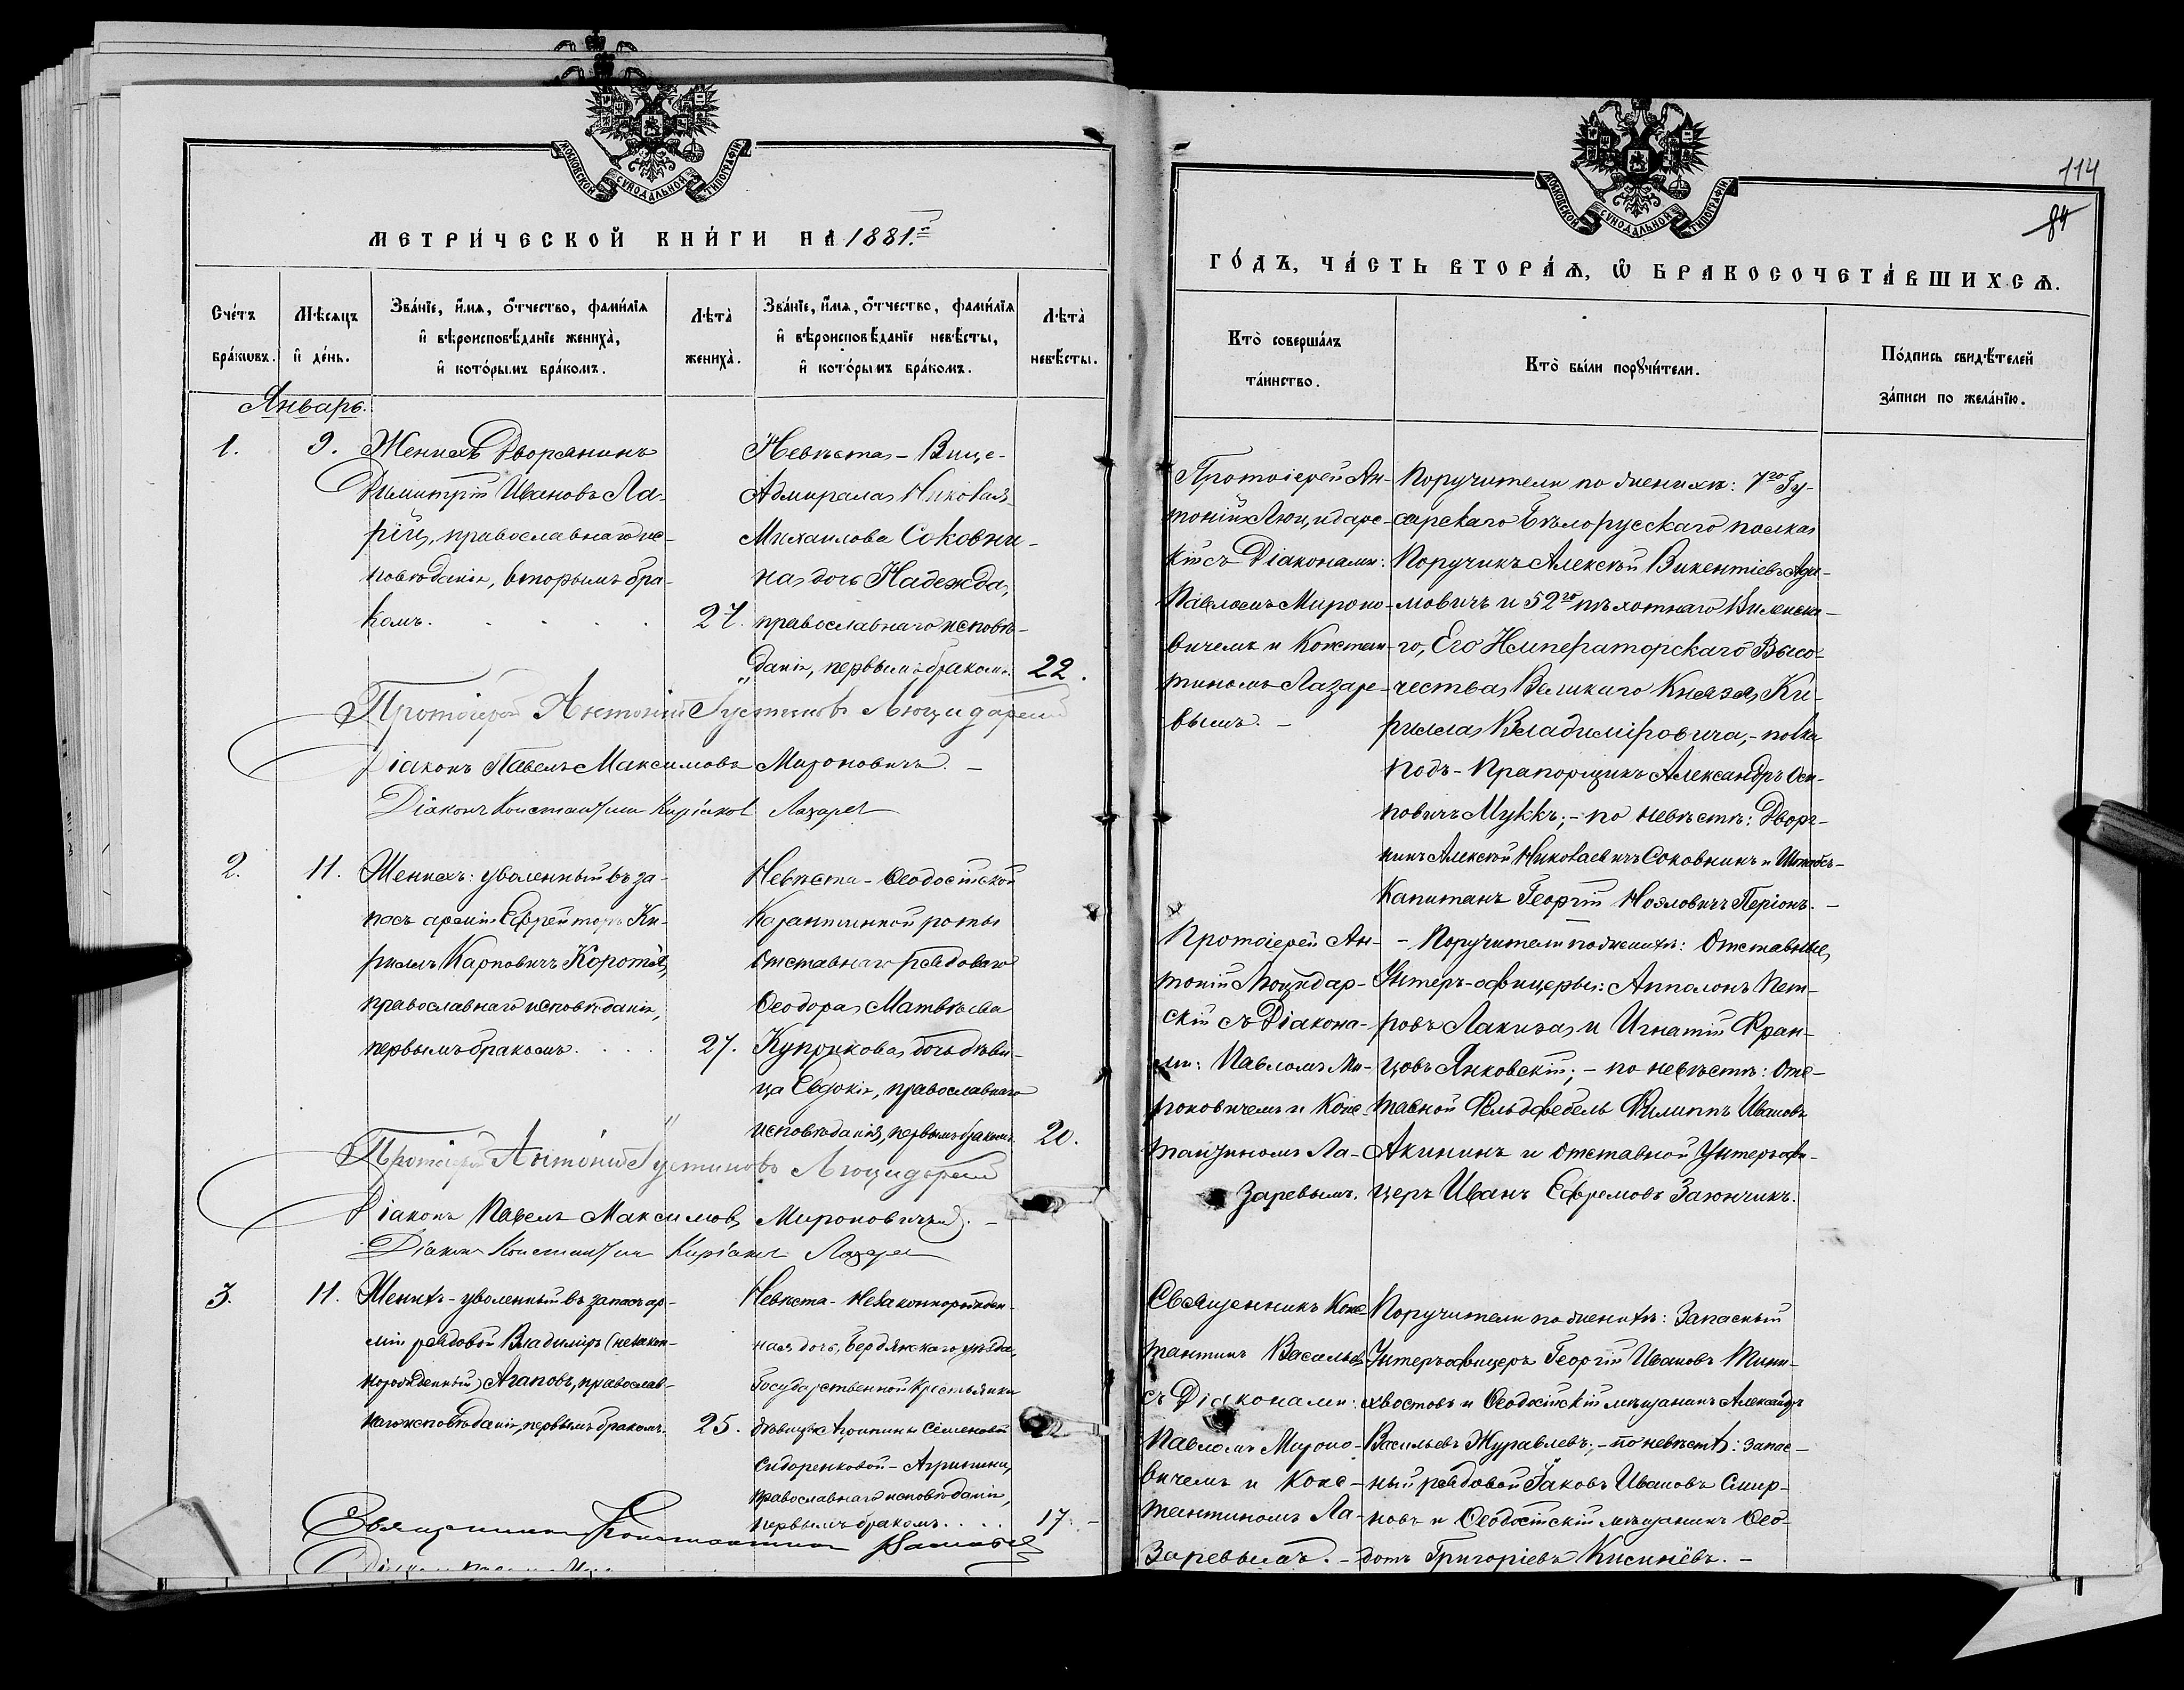 МОСКОВСКОЙ СѴНОДАЛЬНОЙ ТИПОГРАФІИ
МЕТРИ́ЧЕСКОЙ КНИ́ГИ НА 1881.й
Сче́тъ бра́кѡвъ.
Мѣсяцъ и҆ де́нь.
Зва́нїе, и҆́мѧ, ѻ҆́тчество, фами́лїѧ
и҆ вѣроисповѣ́данїе жениха̀,
и҆ кото́рымъ бра́комъ.
Лѣта̀ жениха̀.
Зва́нїе, и҆́мѧ, ѻ҆́тчество, фами́лїѧ
и҆ вѣроисповѣ́данїе невѣ́сты,
и҆ кото́рымъ бра́комъ.
Лѣта̀ невѣ́сты.
Январь.
1.
9.
Женихъ Дворянинъ
Димитрій Ивановъ Ла-
рій, православнаго ис-
повѣданія, вторымъ бра-
комъ. . . . . .
27.
Невѣста - Вице-
Адмирала Николая
Михаилова Соковни-
на дочь Надежда,
православнаго исповѣ-
данія, первымъ бракомъ.
22.
Протоіерей Антоній Густиновъ Люцидарскій
Діаконъ Павелъ Максимовъ Мироновичъ. -
Діаконъ Константинъ Киріаковъ Лазаревъ
2.
11.
Женихъ: уволенный въ за-
пасъ арміи Ефрейторъ Ки-
риллъ Карповичъ Коротай,
православнаго исповѣданія,
первымъ бракомъ. . . .
27.
Невѣста - Ѳеодосійской
Карантинной роты
отставнаго рядоваго
Ѳеодора Матвѣева
Куприкова, дочь дѣви-
ца Евдокія, православнаго
исповѣданія, первымъ бракомъ.
20.
Протоіерей Антоній Густиновъ Люцидарскій
Діаконъ Павелъ Максимовъ Мироновичъ. -
Діаконъ Константинъ Киріаковъ Лазаревъ
3.
11.
Женихъ - уволенный въ запасъ ар-
міи рядовой Владиміръ (незакон-
норожденный) Агаповъ, православ-
наго исповѣданія, первымъ бракомъ.
25.
Невѣста - незаконнорожден-
ная дочь, Бердянскаго уѣзда,
Государственной Крестьянки
дѣвицы Агрипины Семеновой
Сидоренковой - Агрипина,
православнаго исповѣданія,
первымъ бракомъ. . . .
17. -
Священникъ Константинъ Васильевъ
114
84
МОСКОВСКОЙ СѴНОДАЛЬНОЙ ТИПОГРАФІИ
ГО́ДЪ, ЧА́СТЬ ВТОРА́Ѧ, Ѡ҆ БРАКОСОЧЕТА́ВШИХСѦ.
Кто̀ соверша́лъ
та́инство.
Кто̀ бы́ли порꙋчи́тели.
По́дпись свидѣ́телей
за́писи по жела́нїю.
Протоіерей Ан-
тоній Люцидарс-
кій съ Діаконами:
Павломъ Мироно-
вичемъ и Констан-
тиномъ Лазаре-
вымъ. -
Поручители по женихѣ: 7го Гу-
сарскаго Бѣлорусскаго полка
Поручикъ Алексѣй Викентіевъ Ада-
мовичъ и 52го пѣхотнаго Виленска-
го, Его Императорскаго Высо-
чества Великаго Князя Ки-
рилла Владиміровича, - полка
подъ-Прапорщикъ Александръ Оси-
повичъ Муккъ; - по невѣстѣ: Дворя-
нинъ Алексѣй Николаевичъ Соковнинъ и Штабсъ-
Капитанъ Георгій Ноэловичъ Перionъ. -
Протоіерей Ан-
тоній Люцидар-
скій съ Діакона-
ми: Павломъ Ми-
роновичемъ и Конс-
тантиномъ Ла-
заревымъ.
- Поручители по женихѣ: Отставные
Унтеръ-офицеры: Апполонъ Пет-
ровъ Лакиза и Игнатій Фран-
цовъ Янковскій; - по невѣстѣ: Отс-
тавной Фельдфебель Филиппъ Ивановъ
Акининъ и отставной Унтеръ-офи-
церъ Иванъ Ефремовъ Заюнчикъ.
Священникъ Конс-
тантинъ Васильевъ
съ Діаконами:
Павломъ Мироно-
вичемъ и Конс-
тантиномъ Ла-
заревымъ. -
Поручители по женихѣ: Запасный
Унтеръ-офицеръ Георгій Ивановъ Тини-
хвостовъ и Ѳеодосійскій мѣщанинъ Александръ
Васильевъ Журавлевъ; - по невѣстѣ: запас-
ный рядовой Іаковъ Ивановъ Смир-
новъ и Ѳеодосійскій мѣщанинъ Ѳео-
дотъ Григоріевъ Кисинёвъ. -